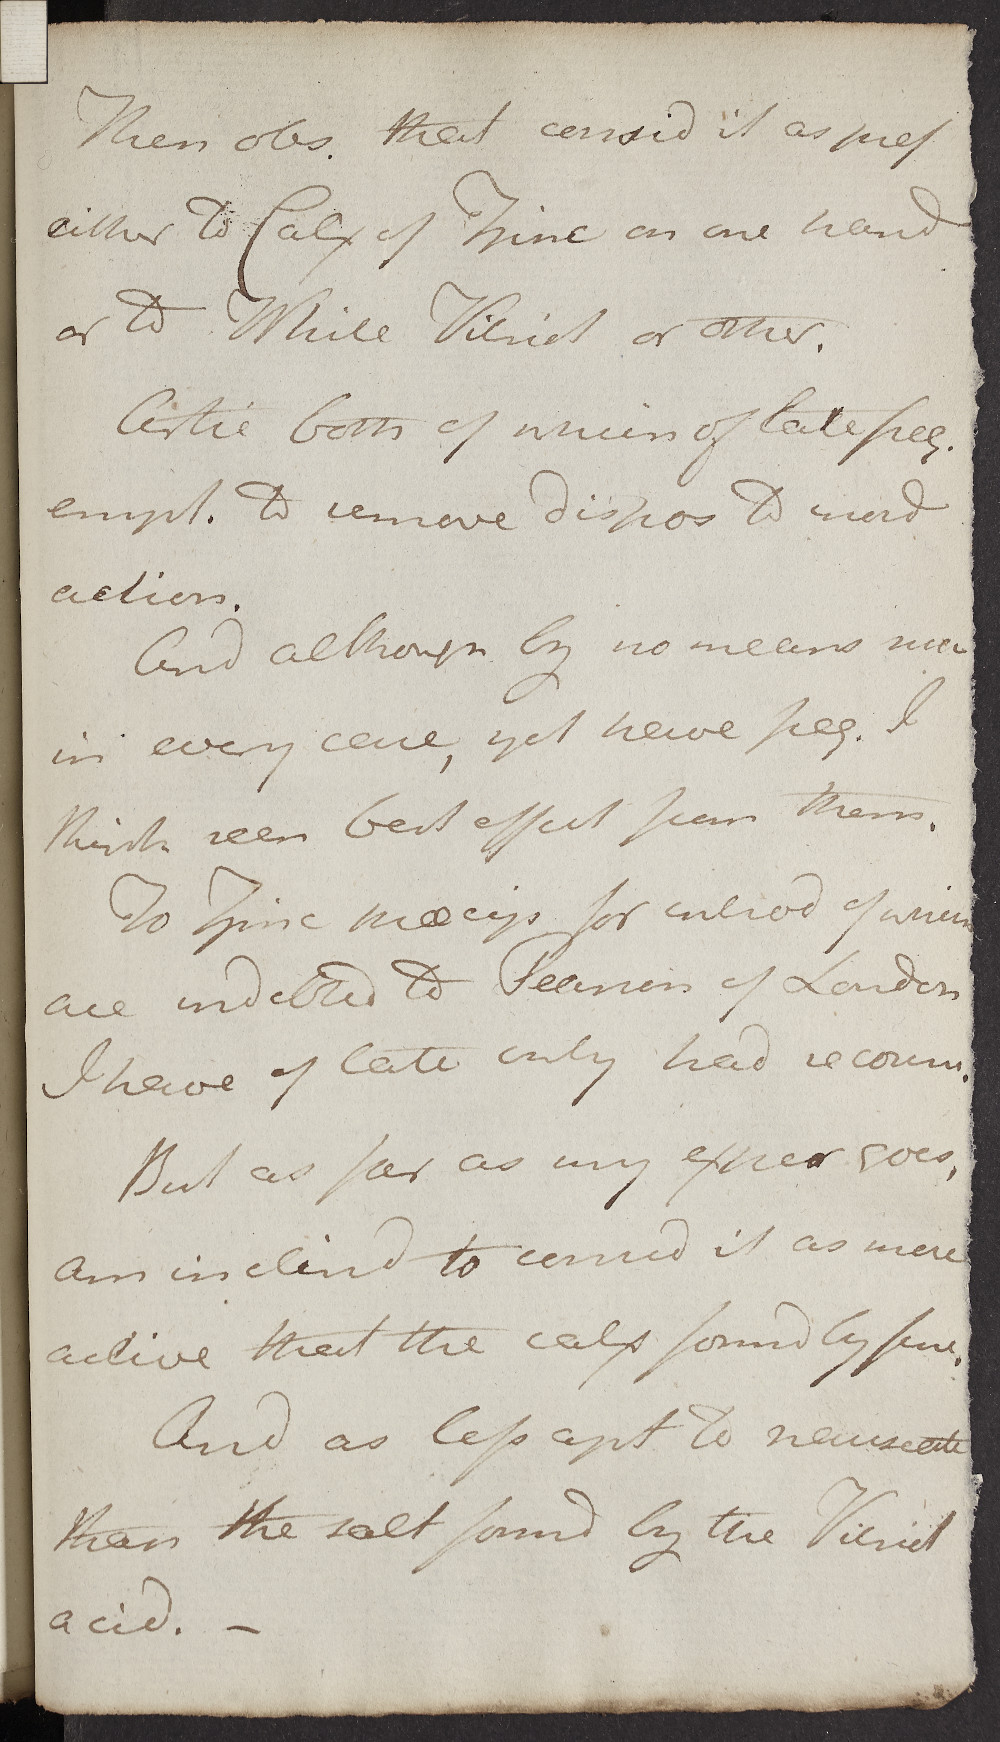 Then obs. that consid it as pref
either to Calx of Zinc on one hand
or to White Vitriol or other.
both of which of late freq.
empl. to remove dispos to morb
action.
And although by no means
in every case, yet have freq. I
think seen best effect from them.
To Zinc præcip for introd of which
are indebted to Pearson of London
I have of late only had recours.
But as far as my exper goes,
am inclind to consid it as more
active that the calx formd by fire.
And as less apt to nauseate
than the salt formd by the Vitriol
acid. –